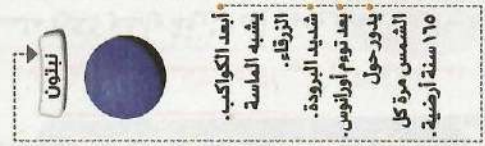 نبتون
أبعد الكواكب.
يشبه الماسة
الزرقاء.
شديد البرودة.
يعد توءم أورانوس.
يدور حول
الشمس مرة كل
١٦٥ سنة أرضية.